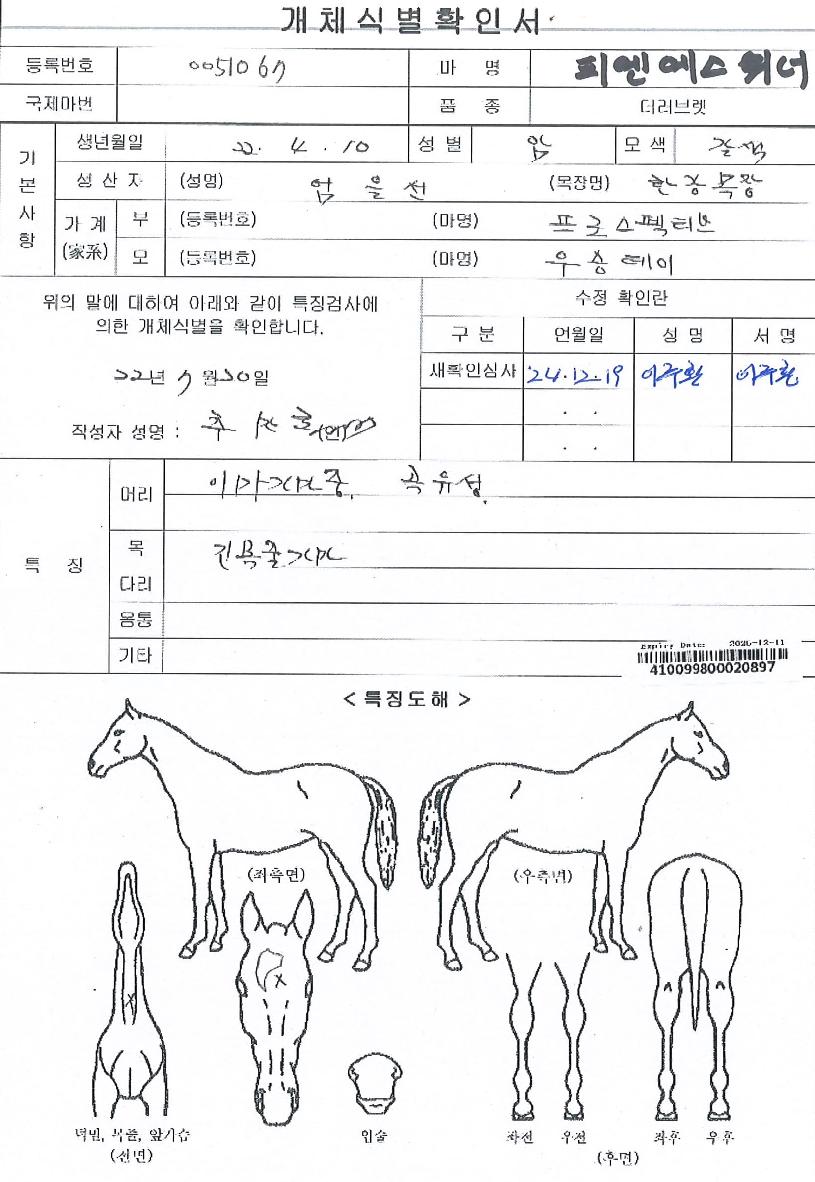 개체식별확인서
등록번호 0051067 마 명 피엔에스위너
국제마번 품 종 더러브렛
기본사항
생년월일 22. 4. 10 성 별 암 모 색 갈색
생 산 자 (성명) 엄 을 선 (목장명) 한강목장
가 계 (家系) 부 (등록번호) (마명) 프로스펙티브
모 (등록번호) (마명) 우승데이
위의 말에 대하여 아래와 같이 특징검사에
의한 개체식별을 확인합니다.
22년 7월 30일
작성자 성명 :
수정 확인란
구 분 연월일 성 명 서 명
새확인심사 '24.12.19 이주환 이주환
. .
. .
특 징
머리 곡유성.
목
다리
몸통
기타
Expiry Date: 2026-12-11
410099800020897
< 특징도해 >
(좌측면) (우측면)
턱밑, 목줄, 앞가슴
(전면)
입술
좌전 우전 좌후 우후
(후면)